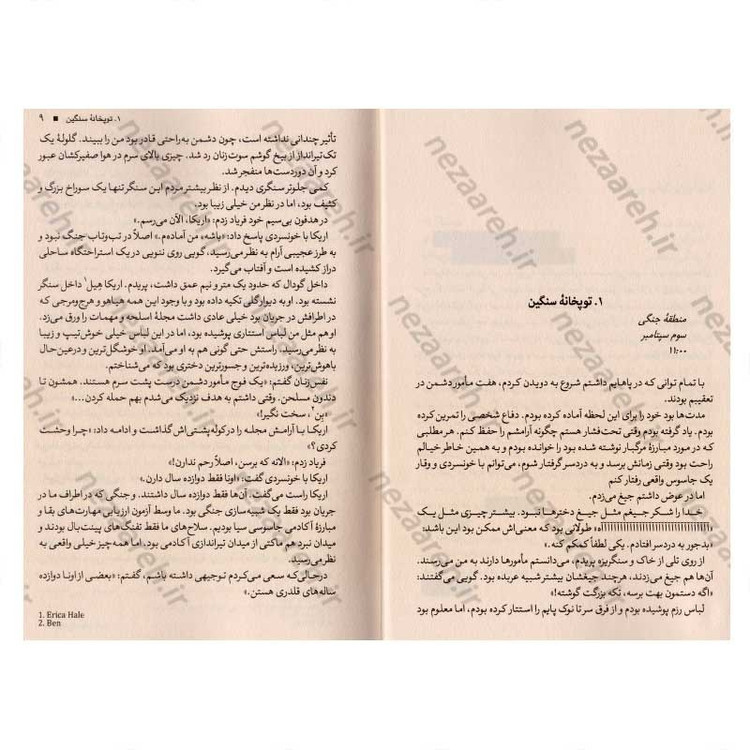 ۱. توپخانهٔ سنگین
منطقهٔ جنگی
سوم سپتامبر
۱۱:۰۰
با تمام توانی که در پاهایم داشتم شروع به دویدن کردم، هفت مأمور دشمن در
تعقیبم بودند.
مدت‌ها بود خود را برای این لحظه آماده کرده بودم. دفاع شخصی را تمرین کرده
بودم. یاد گرفته بودم وقتی تحت‌فشار هستم چگونه آرامشم را حفظ کنم. هر مطلبی
که در مورد مبارزهٔ مرگبار نوشته شده بود را خوانده بودم و به همین خاطر خیالم
راحت بود وقتی زمانش برسد و به دردسر گرفتار شوم، می‌توانم با خونسردی و وقار
یک جاسوس واقعی رفتار کنم
اما در عوض داشتم جیغ می‌زدم.
خدا را شکر جیغم مثل جیغ دخترها نبود. بیشتر چیزی مثل یک
طولانی بود که معنی‌اش ممکن بود این باشد:
«بدجور به دردسر افتادم. یکی لطفاً کمکم کنه.»
از روی تلی از خاک و سنگریزه پریدم. می‌دانستم مأمورها دارند به من می‌رسند.
آن‌ها هم جیغ می‌زدند، هرچند جیغشان بیشتر شبیه عربده بود. گویی می‌گفتند:
«اگه دستمون بهت برسه، تکه بزرگت گوشته!»
لباس رزم پوشیده بودم و از فرق سر تا نوک پایم را استتار کرده بودم، اما معلوم بود
۱. توپخانهٔ سنگین ■ ۹
تأثیر چندانی نداشته است، چون دشمن به‌راحتی قادر بود من را ببیند. گلولهٔ یک
تک‌تیرانداز از بیخ گوشم سوت‌زنان رد شد. چیزی بالای سرم در هوا صفیرکشان عبور
کرد و آن دوردست‌ها منفجر شد.
کمی جلوتر سنگری دیدم. از نظر بیشتر مردم این سنگر تنها یک سوراخ بزرگ و
کثیف بود، اما در نظر من خیلی زیبا بود.
در هدفون بی‌سیم خود فریاد زدم: «اریکا، الآن می‌رسم.»
اریکا با خونسردی پاسخ داد: «باشه، من آماده‌م.» اصلاً در تب‌وتاب جنگ نبود و
به طرز عجیبی آرام به نظر می‌رسید، گویی روی ننویی در یک استراحتگاه ساحلی
دراز کشیده است و آفتاب می‌گیرد.
داخل گودال که حدود یک متر و نیم عمق داشت، پریدم. اریکا هِیل۱ داخل سنگر
نشسته بود. او به دیوار گلی تکیه داده بود و با وجود این همه هیاهو و هرج‌ومرجی که
در اطرافش در جریان بود خیلی عادی داشت مجلهٔ اسلحه و مهمات را ورق می‌زد.
او هم مثل من لباس استتاری پوشیده بود، اما در این لباس خیلی خوش‌تیپ و زیبا
به نظر می‌رسید. راستش حتی گونی هم به او می‌آمد. او خوشگل‌ترین و درعین‌حال
باهوش‌ترین، ورزیده‌ترین و جسورترین دختری بود که می‌شناختم.
نفس‌زنان گفتم: «یک فوج مأمور دشمن درست پشت سرم هستند. همشون تا
دندون مسلحن. وقتی داشتم به هدف نزدیک می‌شدم بهم حمله کردن...»
«بِن۲، سخت نگیر!»
اریکا با آرامش مجله را در کوله‌پشتی‌اش گذاشت و ادامه داد: «چرا وحشت
کردی؟»
فریاد زدم: «الانه که برسن، اصلاً رحم ندارن!»
اریکا با خونسردی گفت: «اونا فقط دوازده سال دارن.»
اریکا راست می‌گفت. آن‌ها فقط دوازده سال داشتند. و جنگی که در اطراف ما در
جریان بود فقط یک شبیه‌سازی جنگی بود. ما وسط آزمون ارزیابی مهارت‌های بقا و
مبارزهٔ آکادمی جاسوسی سیا بودیم. سلاح‌های ما فقط تفنگ‌های پینت‌بال بودند و
میدان نبرد هم ماکتی از میدان تیراندازی آکادمی بود. اما همه‌چیز خیلی واقعی به
نظر می‌رسید.
درحالی‌که سعی می‌کردم توجیهی داشته باشم، گفتم: «بعضی از اونا دوازده
ساله‌های قلدری هستن.»
1. Erica Hale
2. Ben
nezaareh.ir